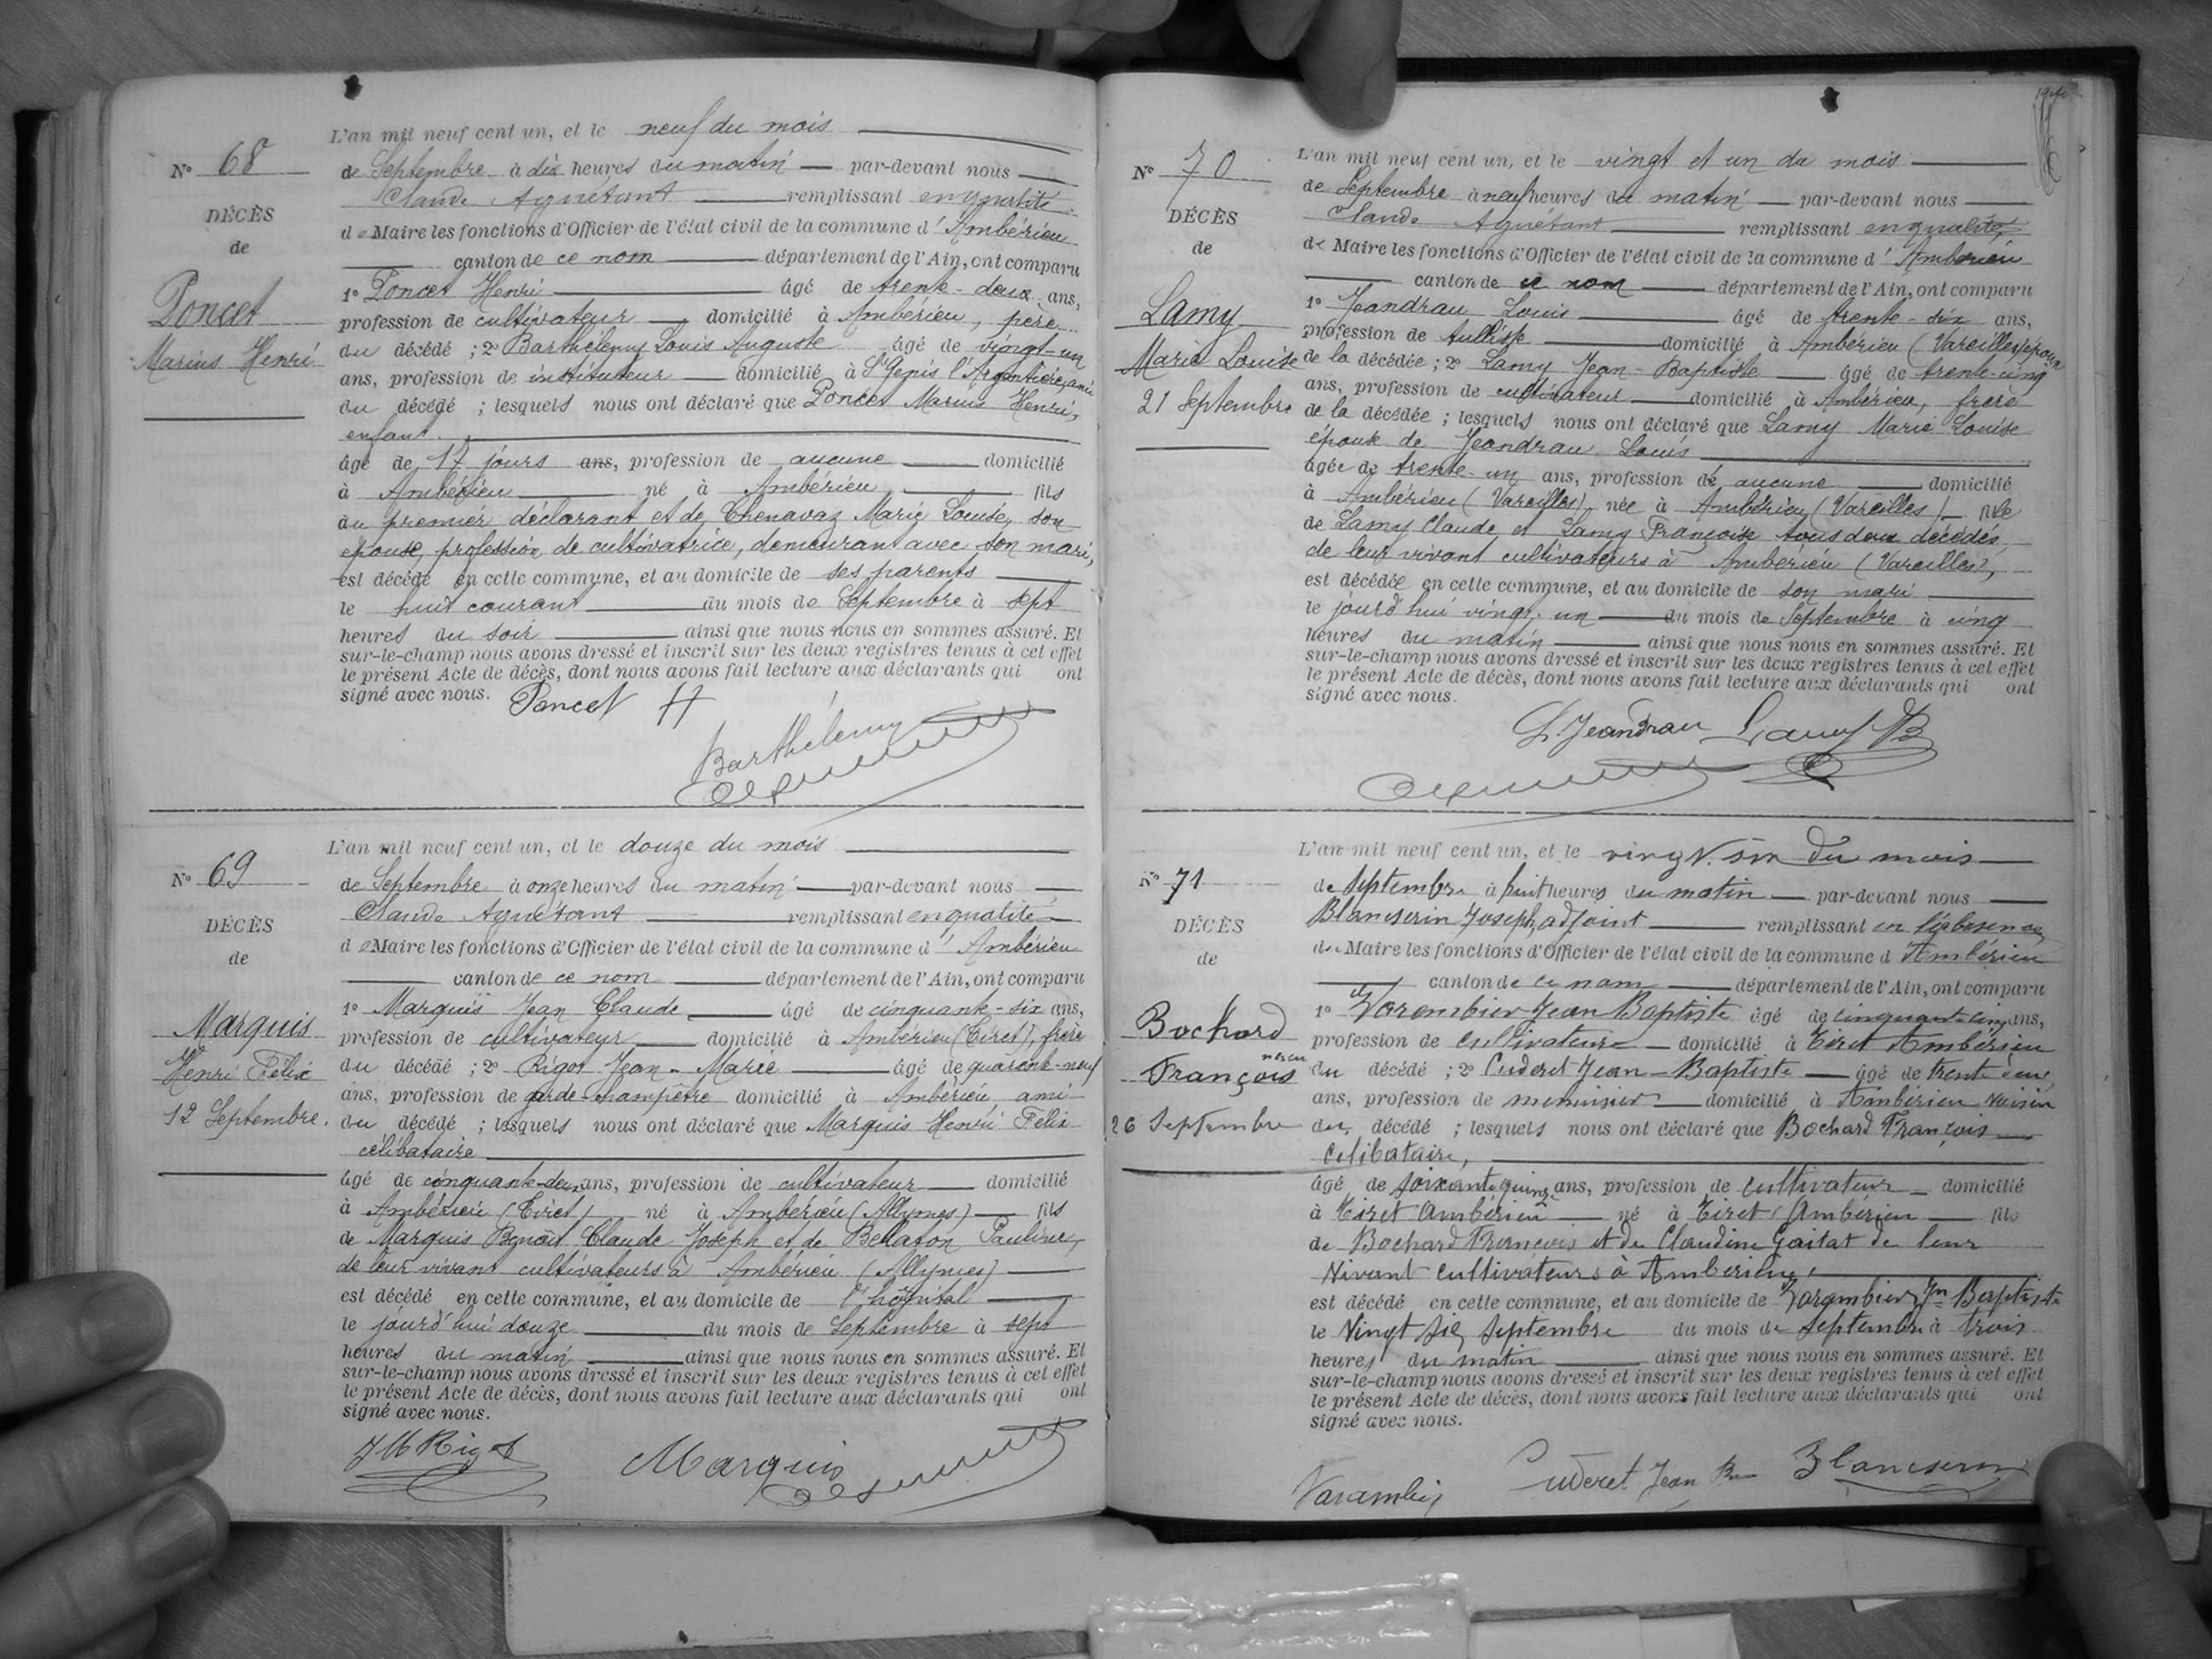 L'an mil neuf cent un, et le neuf du mois
No 68
de Septembre à dix heures du matin par-devant nous
Claude Agnétant remplissant en qualité
DÉCÈS
de Maire les fonctions d'Officier de l'état civil de la commune d'Ambérieu
de
canton de ce nom département de l'Ain, ont comparu
1o Poncet Henri âgé de trente-deux ans,
Poncet
profession de cultivateur domicilié à Ambérieu, père
Marius Henri
du décédé ; 2o Barthélemy Louis Auguste âgé de vingt-un
ans, profession de instituteur domicilié à St Genis l'Argentière, ami
du décédé ; lesquels nous ont déclaré que Poncet Marius Henri,
enfant.
âgé de 17 jours ans, profession de aucune domicilié
à Ambérieu né à Ambérieu fils
du premier déclarant et de Chenavaz Marie Louise, son
épouse, profession de cultivatrice, demeurant avec son mari,
est décédé en cette commune, et au domicile de ses parents
le huit courant du mois de Septembre à sept
heures du soir ainsi que nous nous en sommes assuré. Et
sur-le-champ nous avons dressé et inscrit sur les deux registres tenus à cet effet
le présent Acte de décès, dont nous avons fait lecture aux déclarants qui ont
signé avec nous.
Poncet H
Barthélemy
L'an mil neuf cent un, et le douze du mois
No 69
de Septembre à onze heures du matin par-devant nous
Claude Agnétant remplissant en qualité
DÉCÈS
de Maire les fonctions d'Officier de l'état civil de la commune d'Ambérieu
de
canton de ce nom département de l'Ain, ont comparu
1o Marquis Jean Claude âgé de cinquante-six ans,
Marquis
profession de cultivateur domicilié à Ambérieu (Tiret), frère
Henri Félix
du décédé ; 2o Rigot Jean-Marie âgé de quarante-neuf
ans, profession de garde-champêtre domicilié à Ambérieu ami
12 Septembre.
du décédé ; lesquels nous ont déclaré que Marquis Henri Félix
célibataire
âgé de cinquante-deux ans, profession de cultivateur domicilié
à Ambérieu (Tiret) né à Ambérieu (Allymes) fils
de Marquis Benoît Claude Joseph et de Bellaton Pauline,
de leur vivant cultivateurs à Ambérieu (Allymes)
est décédé en cette commune, et au domicile de l'hôpital
le jourd'hui douze du mois de Septembre à sept
heures du matin ainsi que nous nous en sommes assuré. Et
sur-le-champ nous avons dressé et inscrit sur les deux registres tenus à cet effet
le présent Acte de décès, dont nous avons fait lecture aux déclarants qui ont
signé avec nous.
JM Rigot
Marquis
L'an mil neuf cent un, et le vingt et un du mois
No 70
de Septembre à neuf heures du matin par-devant nous
Claude Agnétant remplissant en qualité,
DÉCÈS
de Maire les fonctions d'Officier de l'état civil de la commune d'Ambérieu
de
canton de ce nom département de l'Ain, ont comparu
1o Jeandrau Louis âgé de trente-six ans,
Lamy
profession de tulliste domicilié à Ambérieu (Vareilles) époux
Marie Louise
de la décédée ; 2o Lamy Jean-Baptiste âgé de trente-cinq
ans, profession de cultivateur domicilié à Ambérieu, frère
21 Septembre
de la décédée ; lesquels nous ont déclaré que Lamy Marie Louise
épouse de Jeandrau Louis
âgée de trente-un ans, profession de aucune domicilié
à Ambérieu (Vareilles), née à Ambérieu (Vareilles) fille
de Lamy Claude et Lamy Françoise tous deux décédés,
de leur vivant cultivateurs à Ambérieu (Vareilles),
est décédée en cette commune, et au domicile de son mari
le jourd'hui vingt-un du mois de Septembre à cinq
heures du matin ainsi que nous nous en sommes assuré. Et
sur-le-champ nous avons dressé et inscrit sur les deux registres tenus à cet effet
le présent Acte de décès, dont nous avons fait lecture aux déclarants qui ont
signé avec nous.
L. Jeandrau Lamy JB
L'an mil neuf cent un, et le vingt-six du mois
No 71
de septembre à huit heures du matin par-devant nous
Blancserin Joseph, adjoint remplissant en l'absence
DÉCÈS
du Maire les fonctions d'Officier de l'état civil de la commune d'Ambérieu
de
canton de ce nom département de l'Ain, ont comparu
1o Varembier Jean Baptiste âgé de cinquante-cinq ans,
Bochard
profession de cultivateur domicilié à Tiret Ambérieu
François
neveu du décédé ; 2o Cuderet Jean-Baptiste âgé de trente deux
ans, profession de menuisier domicilié à Ambérieu voisin
26 Septembre
du décédé ; lesquels nous ont déclaré que Bochard François
célibataire,
âgé de soixante quinze ans, profession de cultivateur domicilié
à Tiret Ambérieu né à Tiret Ambérieu fils
de Bochard François et de Claudine Goitat de leur
vivant cultivateurs à Ambérieu,
est décédé en cette commune, et au domicile de Varambier Jn Baptiste
le vingt six septembre du mois de septembre à trois
heures du matin ainsi que nous nous en sommes assuré. Et
sur-le-champ nous avons dressé et inscrit sur les deux registres tenus à cet effet
le présent Acte de décès, dont nous avons fait lecture aux déclarants qui ont
signé avec nous.
Varambier Cuderet Jean Bte Blancserin